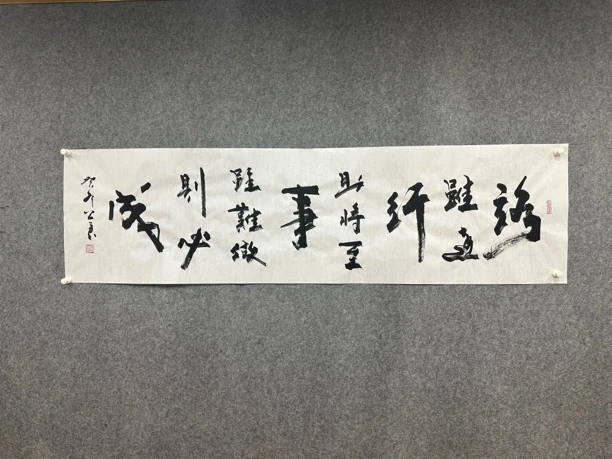 路
雖遠
行
則將至
事
雖難做
則必
成
癸卯